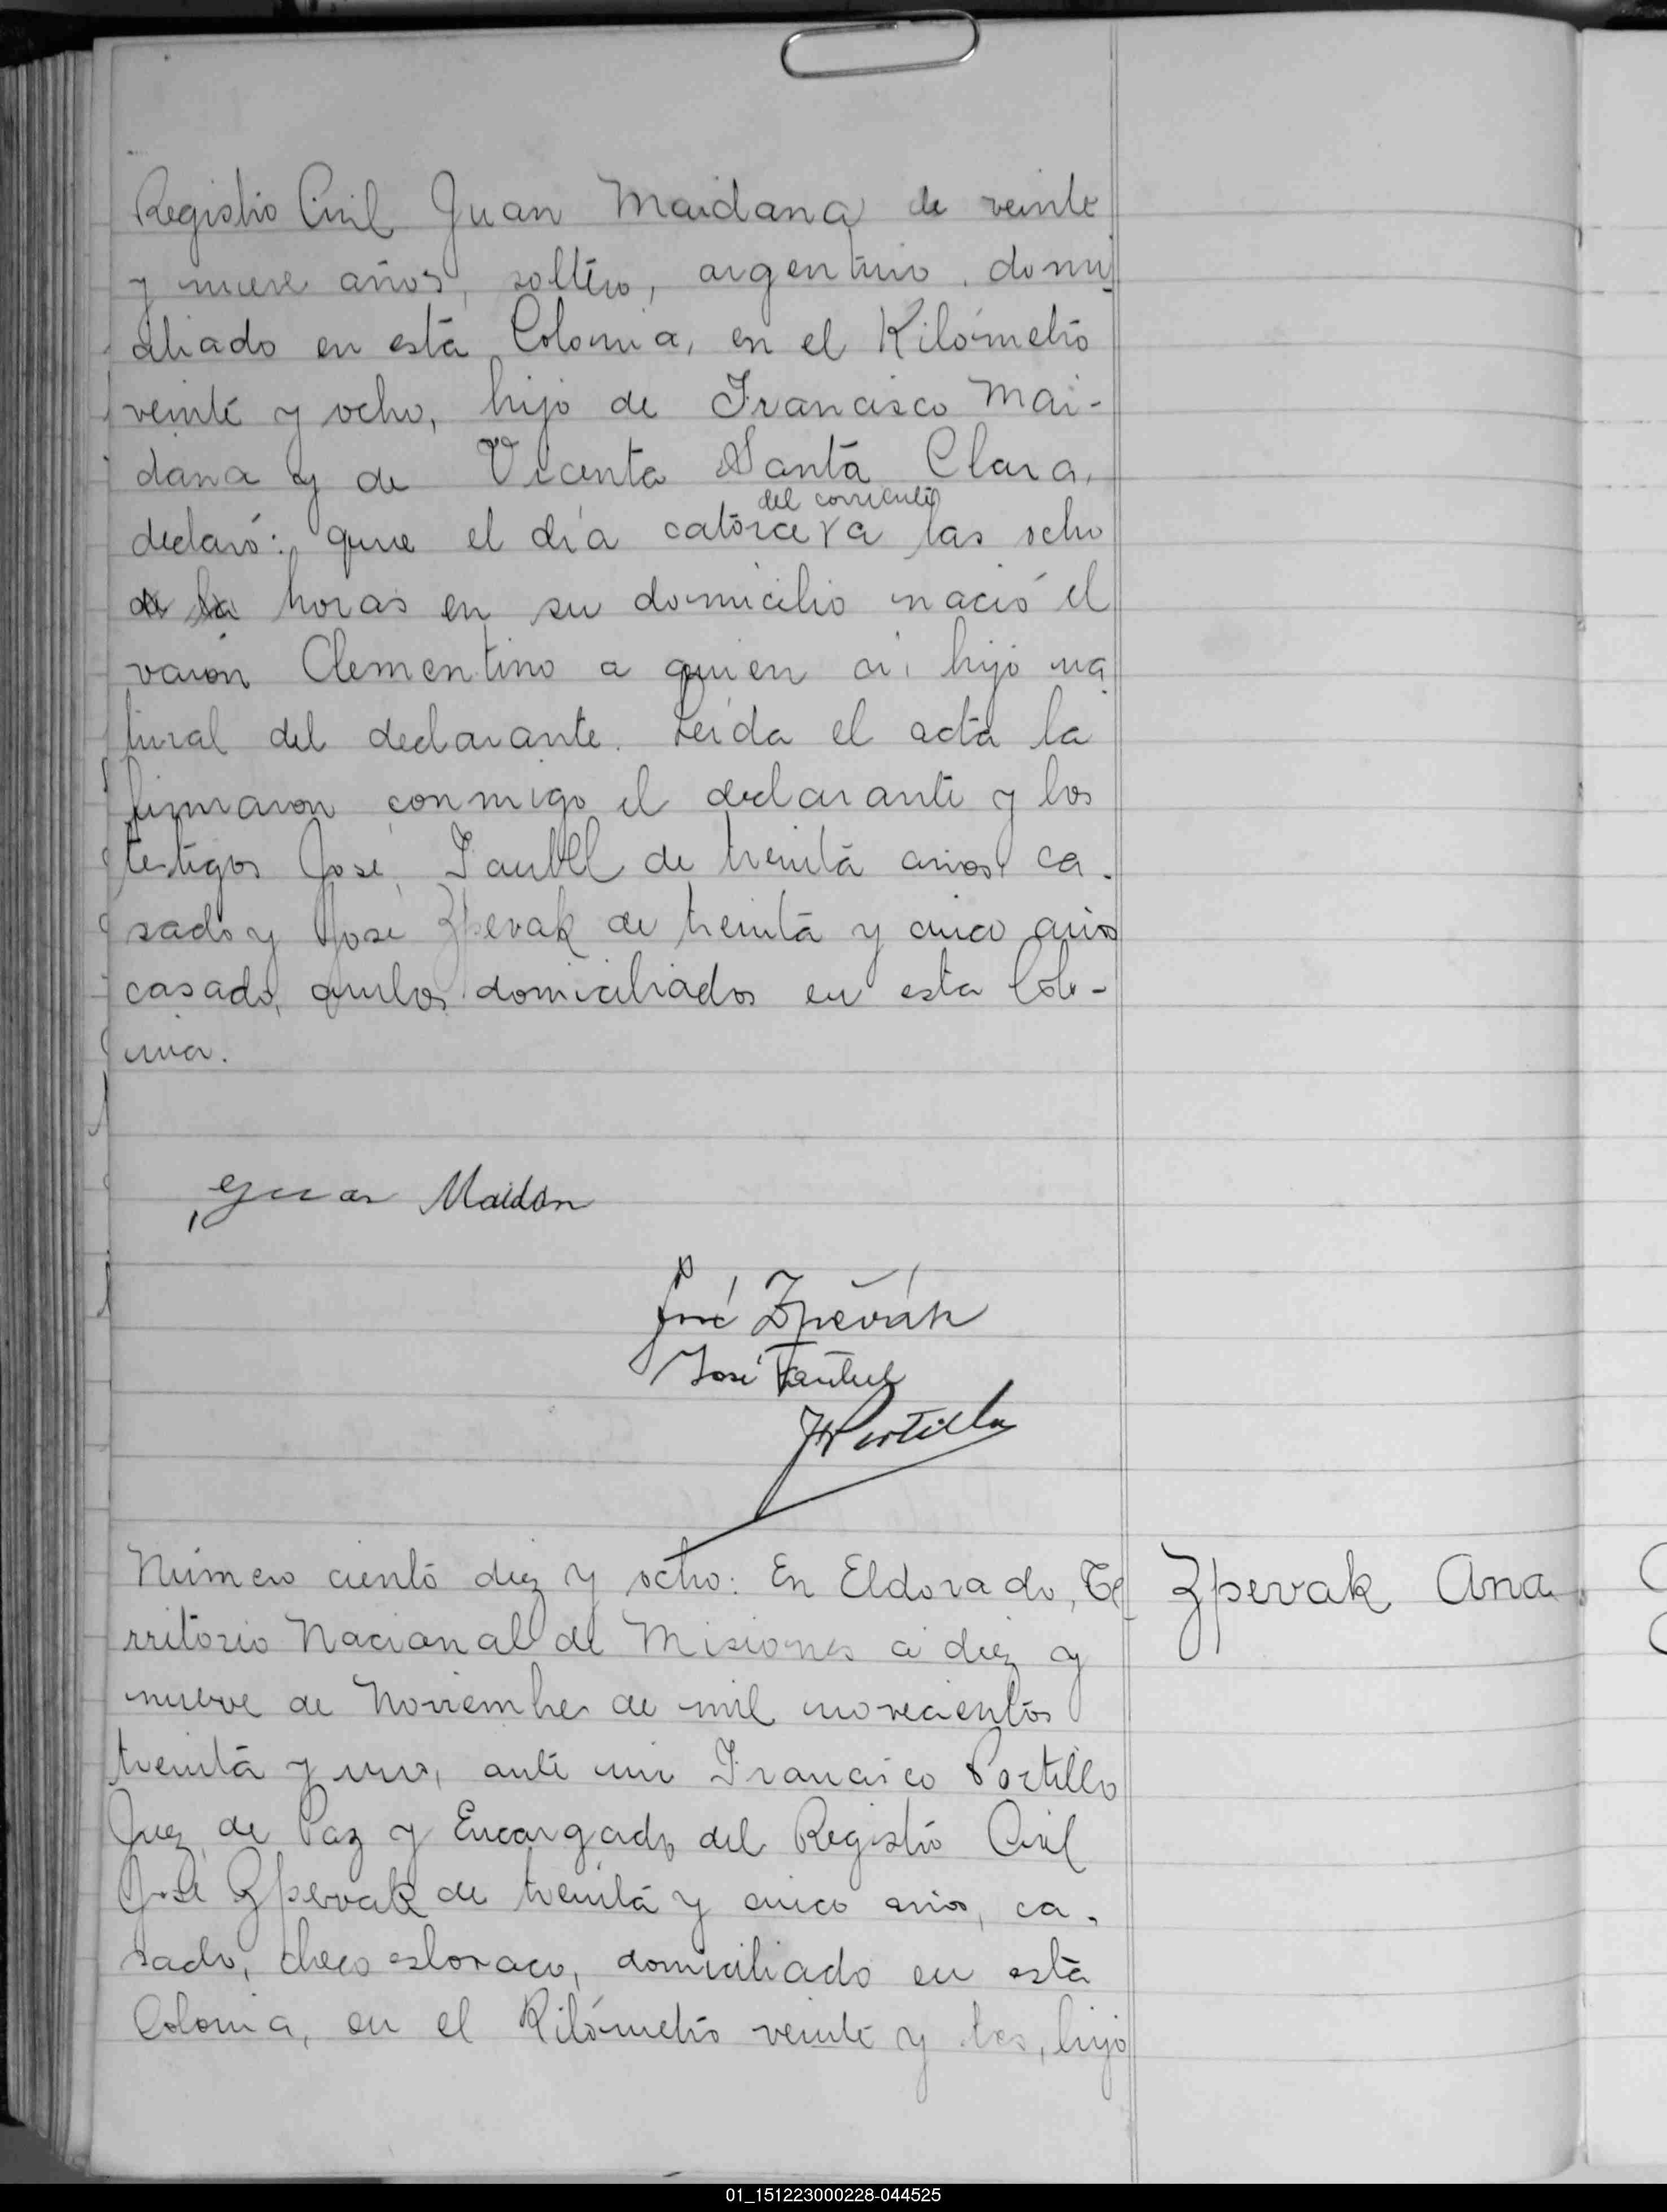 Registro Civil Juan Maidana de veinte
y nueve años, soltero, argentino, domi
ciliado en está Colonia, en el Kilómetro
veinte y ocho, hijo de Francisco Mai-
dana y de Vicenta Santa Clara,
del corriente
declaró: que el día catorce a las ocho
horas en su domicilio nació el
varón Clementino a quien vi, hijo na
tural del declarante. Leída el acta la
firmaron conmigo el declarante y los
testigos José Taubel de treinta años ca-
sado y José Zpevak de treinta y cinco años
casado, ambos domiciliados en esta Colo-
nia.
Juan Maidan
José Zpěvák
José
Portillo
Número ciento diez y ocho: En Eldorado, Te-
Zpevak Ana
rritorio Nacional de Misiones a diez y
nueve de Noviembre de mil novecientos
treinta y uno, ante mi Francisco Portillo
Juez de Paz y Encargado del Registro Civil
José Zpevak de treinta y cinco años, ca-
sado, checo eslovaco, domiciliado en está
Colonia, en el Kilómetro veinte y tres, hijo
01_151223000228-044525